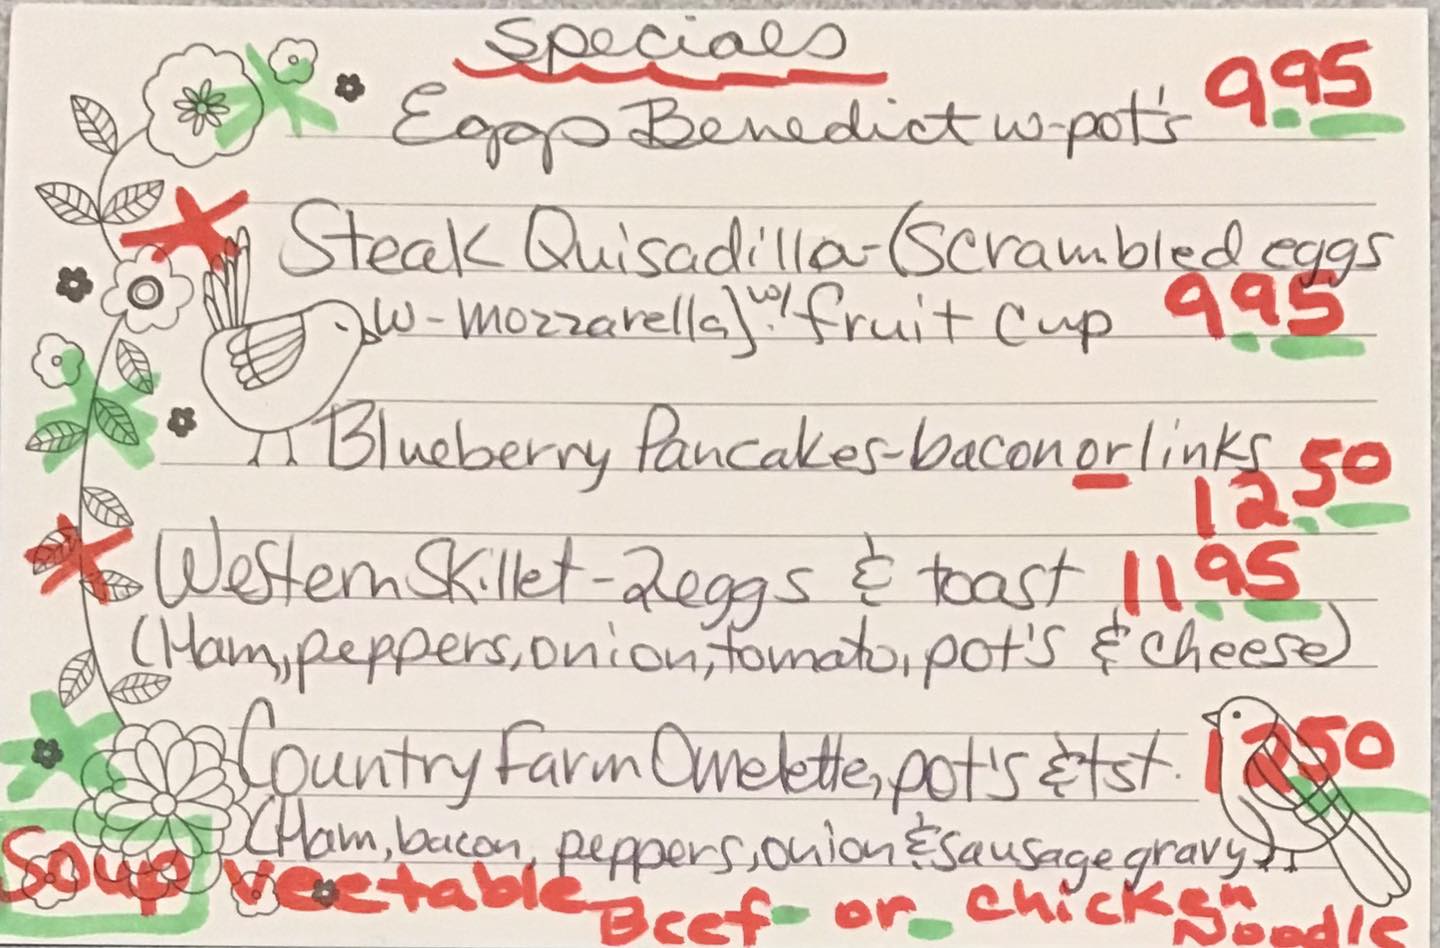 Specials
Eggs Benedict w-pot's 9.95
Steak Quisadilla-(Scrambled eggs
w-mozzarella) w/ fruit cup 9.95
Blueberry Pancakes-bacon or links
12.50
Western Skillet-2eggs & toast 11.95
(Ham, peppers, onion, tomato, pot's & cheese)
Country Farm Omelette, pot's & tst. 12.50
(Ham, bacon, peppers, onion & sausage gravy)
Soup vectable Beef or chicken Noodle